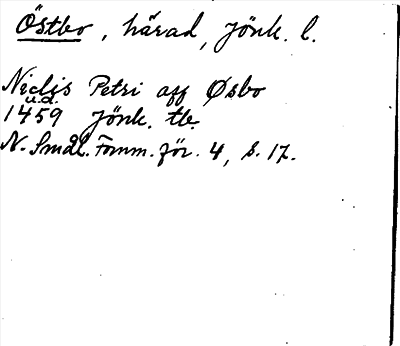 Östbo, härad, Jönk. l.
Niclis Petri aff Øsbo
u.d.
1459 Jönk. tb.
N. Smål. Fornm. för. 4, s. 17.